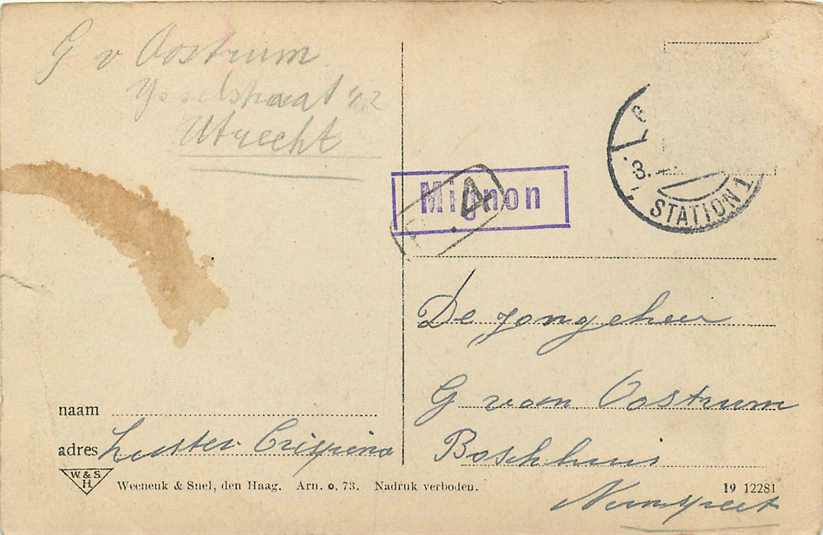 G v Oostrum
Ysselstraat 42
Utrecht
Mignon
A.
3.
STATION 1
De jongeheer
G van Oostrum
Boschhuis
Nunspeet
naam
adres Zuster Crispina
W. & S.
H
Weenenk & Snel, den Haag. Arn. o. 73. Nadruk verboden.
19 12281